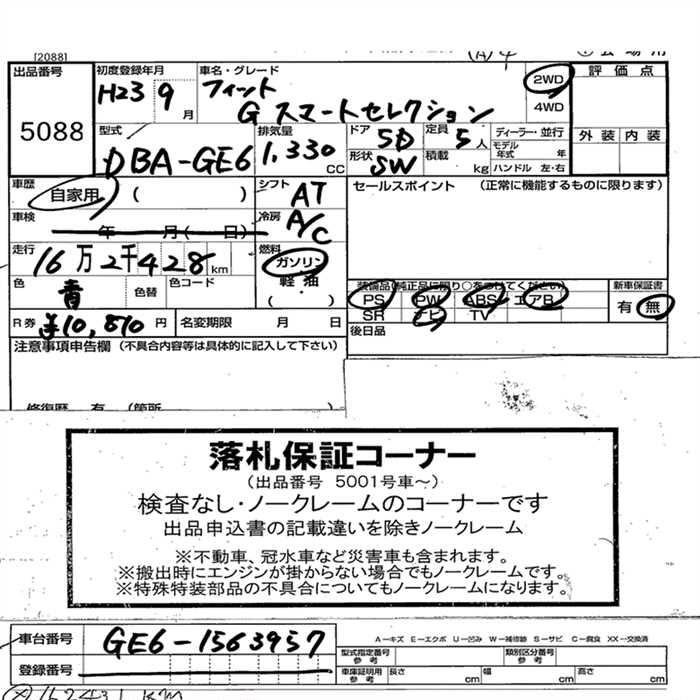 [2088]
出品番号 初度登録年月 車名・グレード 2WD 評価点
H23 9月 フィット 4WD
5088 G スマートセレクション 外装 内装
型式 排気量 ドア 5D 定員 5人 ディーラー・並行
DBA-GE6 1,330cc 形状 SW 積載 kg モデル年式 年 ハンドル 左・右
車歴 自家用 ( ) シフト AT セールスポイント (正常に機能するものに限ります)
車検 年 月 ( 日) 冷房 A/C
走行 16万2千428km 燃料 ガソリン
色 青 色替 色コード 軽油 ( ) 装備品(純正品に限り○をつけてください) 新車保証書
PS PW ABS エアB 有 無
SR ナビ TV
R券 ¥10,810円 名変期限 月 日 後日品
注意事項申告欄 (不具合内容等は具体的に記入して下さい)
修復歴 有 (箇所
落札保証コーナー
(出品番号 5001号車~)
検査なし・ノークレームのコーナーです
出品申込書の記載違いを除きノークレーム
※不動車、冠水車など災害車も含まれます。
※搬出時にエンジンが掛からない場合でもノークレームです。
※特殊特装部品の不具合についてもノークレームになります。
車台番号 GE6-1563957 A-キズ E-エクボ U-凹み W-補修跡 S-サビ C-腐食 XX-交換済
型式指定番号 参考 類別区分番号 参考
登録番号 車庫証明用 参考 長さ cm 幅 cm 高さ cm